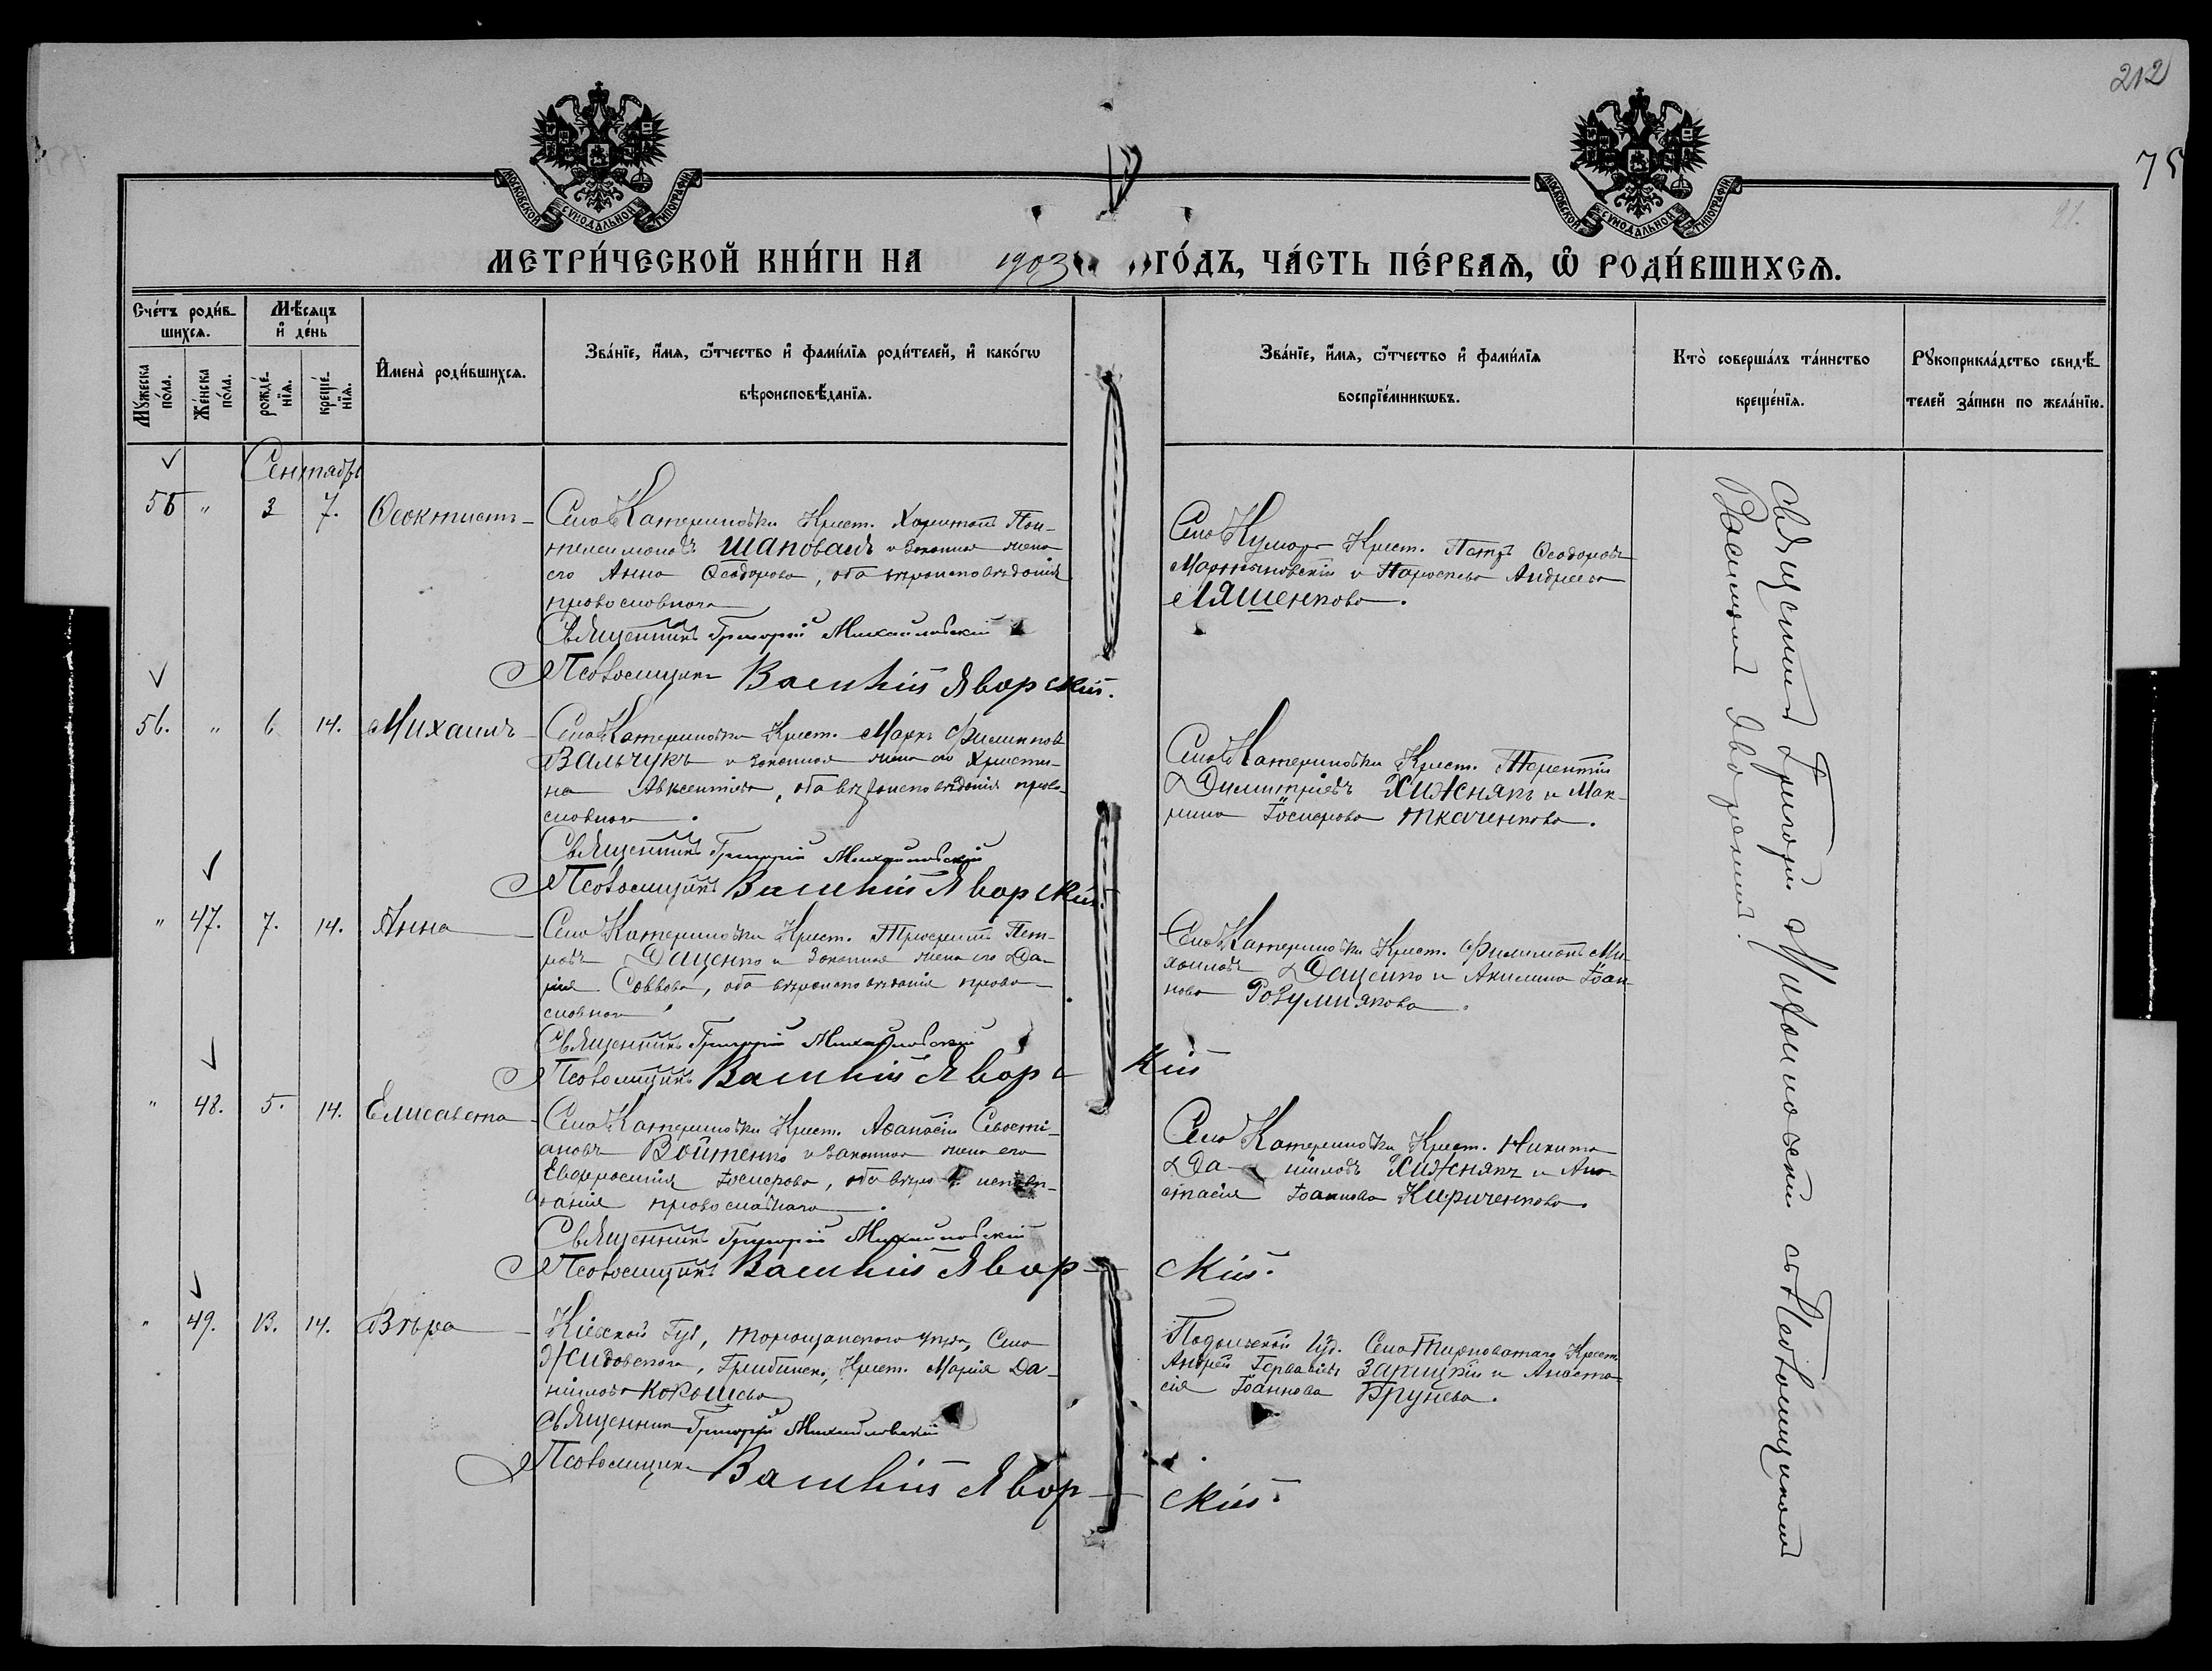 212
75
91.
МОСКОВСКОЙ СѴНОДАЛЬНОЙ ТИПОГРАФІИ
МОСКОВСКОЙ СѴНОДАЛЬНОЙ ТИПОГРАФІИ
МЕТРИ́ЧЕСКОЙ КНИ́ГИ НА 1903 ГО́ДЪ, ЧА́СТЬ ПЕ́РВАѦ, Ѽ РОДИ́ВШИХСѦ.
Сче́тъ роди́в-
шихсѧ.
Мꙋ́жеска
по́ла.
Же́нска
по́ла.
Мѣ́сѧцъ
и҆ де́нь
рожде́-
нїѧ.
креще́-
нїѧ.
И҆мена̀ роди́вшихсѧ.
Зва́нїе, и҆́мѧ, ѻ҆́тчество и҆ фами́лїѧ роди́телей, и҆ како́гѡ
вѣроисповѣ́данїѧ.
Зва́нїе, и҆́мѧ, ѻ҆́тчество и҆ фами́лїѧ
воспрїе́мникѡвъ.
Кто̀ соверша́лъ та́инство
креще́нїѧ.
Рꙋкоприкла́дство свидѣ́-
телей за́писи по жела́нїю.
Сентябрь
55 " 3 7. Ѳеоктистъ
Села Катериновки Крест. Харитонъ Пан-
телеимоновъ Шаповалъ и законная жена
его Анна Ѳеодорова, оба вѣроисповѣданія
православнаго
Священникъ Григорій Михайловскій
Псаломщикъ Василій Яворскій.
Села Кумаръ Крест. Петръ Ѳеодоровъ
Мартыновскій и Параскева Андреева
Ляшенкова.
56. " 6 14. Михаилъ
Села Катериновки Крест. Маркъ Филиповъ
Вальчукъ и законная жена его Христи-
на Авксентіева, оба вѣроисповѣданія право-
славнаго.
Священникъ Григорій Михайловскій
Псаломщикъ Василій Яворскій.
Села Катериновки Крест. Терентій
Димитріевъ Хижнякъ и Мак-
рина Іосифова Ткаченкова.
" 47. 7. 14. Анна
Села Катериновки Крест. Трофимъ Пет-
ровъ Даценко и законная жена его Да-
рія Саввова, оба вѣроисповѣданія право-
славнаго
Священникъ Григорій Михайловскій
Псаломщикъ Василій Яворскій
Села Катериновки Крест. Филимонъ Ми-
хаиловъ Даценко и Акилина Іоан-
нова Розумнякова.
" 48. 5. 14. Елисавета
Села Катериновки Крест. Аѳанасій Севасті-
ановъ Войтенко и законная жена его
Евфросинія Іосифова, оба вѣроисповѣ-
данія православнаго.
Священникъ Григорій Михайловскій
Псаломщикъ Василій Яворскій.
Села Катериновки Крест. Никита
Даніиловъ Хижнякъ и Ана-
стасія Іоаннова Кириченкова.
" 49. 13. 14. Вѣра
Кіевской Губ, Таращанскаго уѣзда, Села
Жидовской Гребинки, Крест. Марія Да-
ніилова Кокошева
Священникъ Григорій Михайловскій
Псаломщикъ Василій Яворскій.
Подольской Губ. Села Тарноватаго Крест.
Андрей Гервасіевъ Зарицкій и Анаста-
сія Іоаннова Брунева.
Священникъ Григорій Михайловскій съ Псаломщикомъ
Василіемъ Яворскимъ.